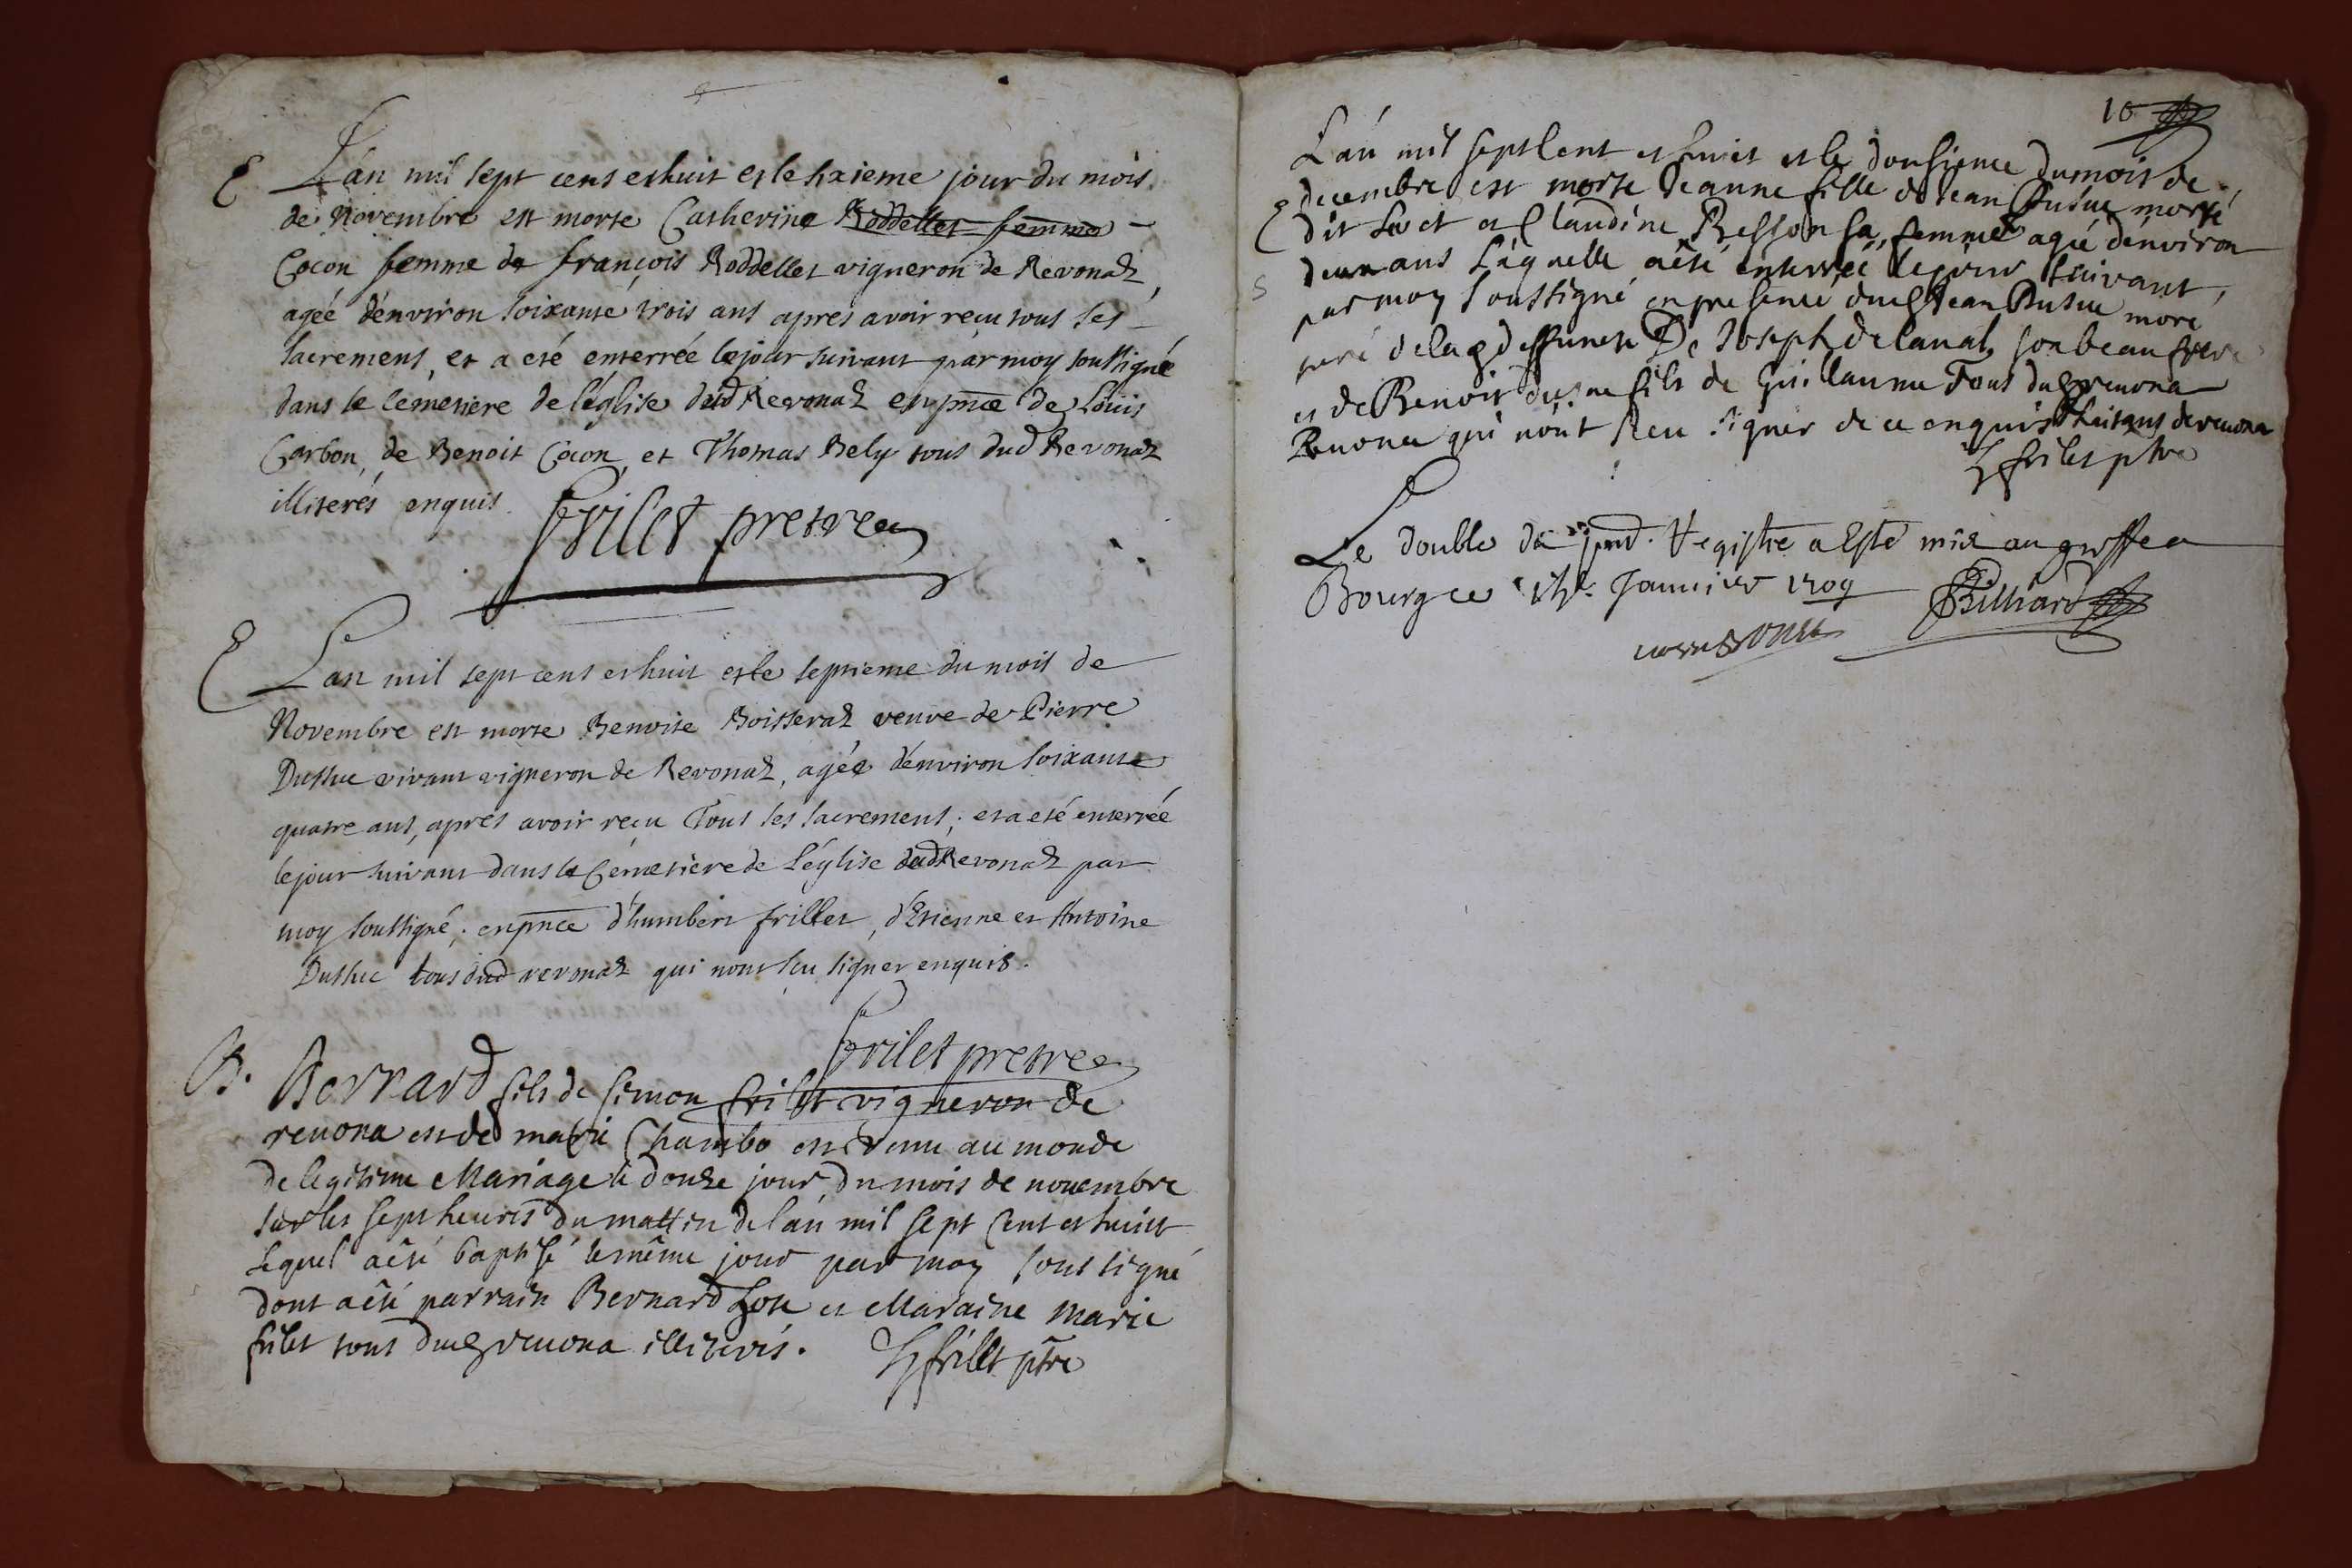 E L'án mil sept cens et huit et le sixieme jour du mois
de Novembre est morte Catherine Roddellet femme -
Cocon femme de françois Roddellet vigneron de Revonaz,
agée d'environ soixante trois ans apres avoir reçu tous les -
sacremens, et a eté enterrée le jour suivant par moy soussigné
dans le cemetiere de l'église dud Revonaz en pñce de Louis
Carbon, de Benoit Cocon, et Thomas Bely tous dud Revonaz
illiterés enquis. frilet pretre
E L'an mil sept cens et huit et le septieme du mois de
Novembre est morte Benoite Boisseraz veuve de Pierre
Dussuc vivant vigneron de Revonaz, agée d'environ soixante
quatre ans, apres avoir reçu Tous les sacremens; et a eté enterrée
le jour suivant dans le Cémetiere de L'église dud Revonaz par
moy soussigné; en pñce d'humbert frillet, d'Etienne et Antoine
Dussuc tous dud revonaz qui n'ont sçu signer enquis.
frilet pretre
B. Bernard fils de simon frilet vigneron de
revona et de marie Chambo est venu au monde
de legitime Mariage le douze jour du mois de novembre
sur les sept heures du mattin de l'an mil sept Cent et huict
Lequel a êté baptisé le même jour par moy soussigné
dont a êté parrain Bernard et Maraine Marie
frilet tous dud revona illiterés. frillet ptre
10
L'an mil sept Cent et huit et le dousieme du mois de
E decembre est morte Jeanne fille de Jean Dusuc
dit et Claudine Besson sa femme agée d'environ
deux ans Laquelle a êté enterrée le jour suivant,
par moy soussigné en presence dud Jean Dusuc
pere de la deffuncte De Joseph delanat son beau frere
et de Benoit fils de Guillaume Tous dud revona
Revona qui n'ont sceu signer de ce enquis habitans de revona
frilet ptre
Le double du pnt. Registre a esté mis au greffe a
Bourg ce Janvier 1709 Billiard